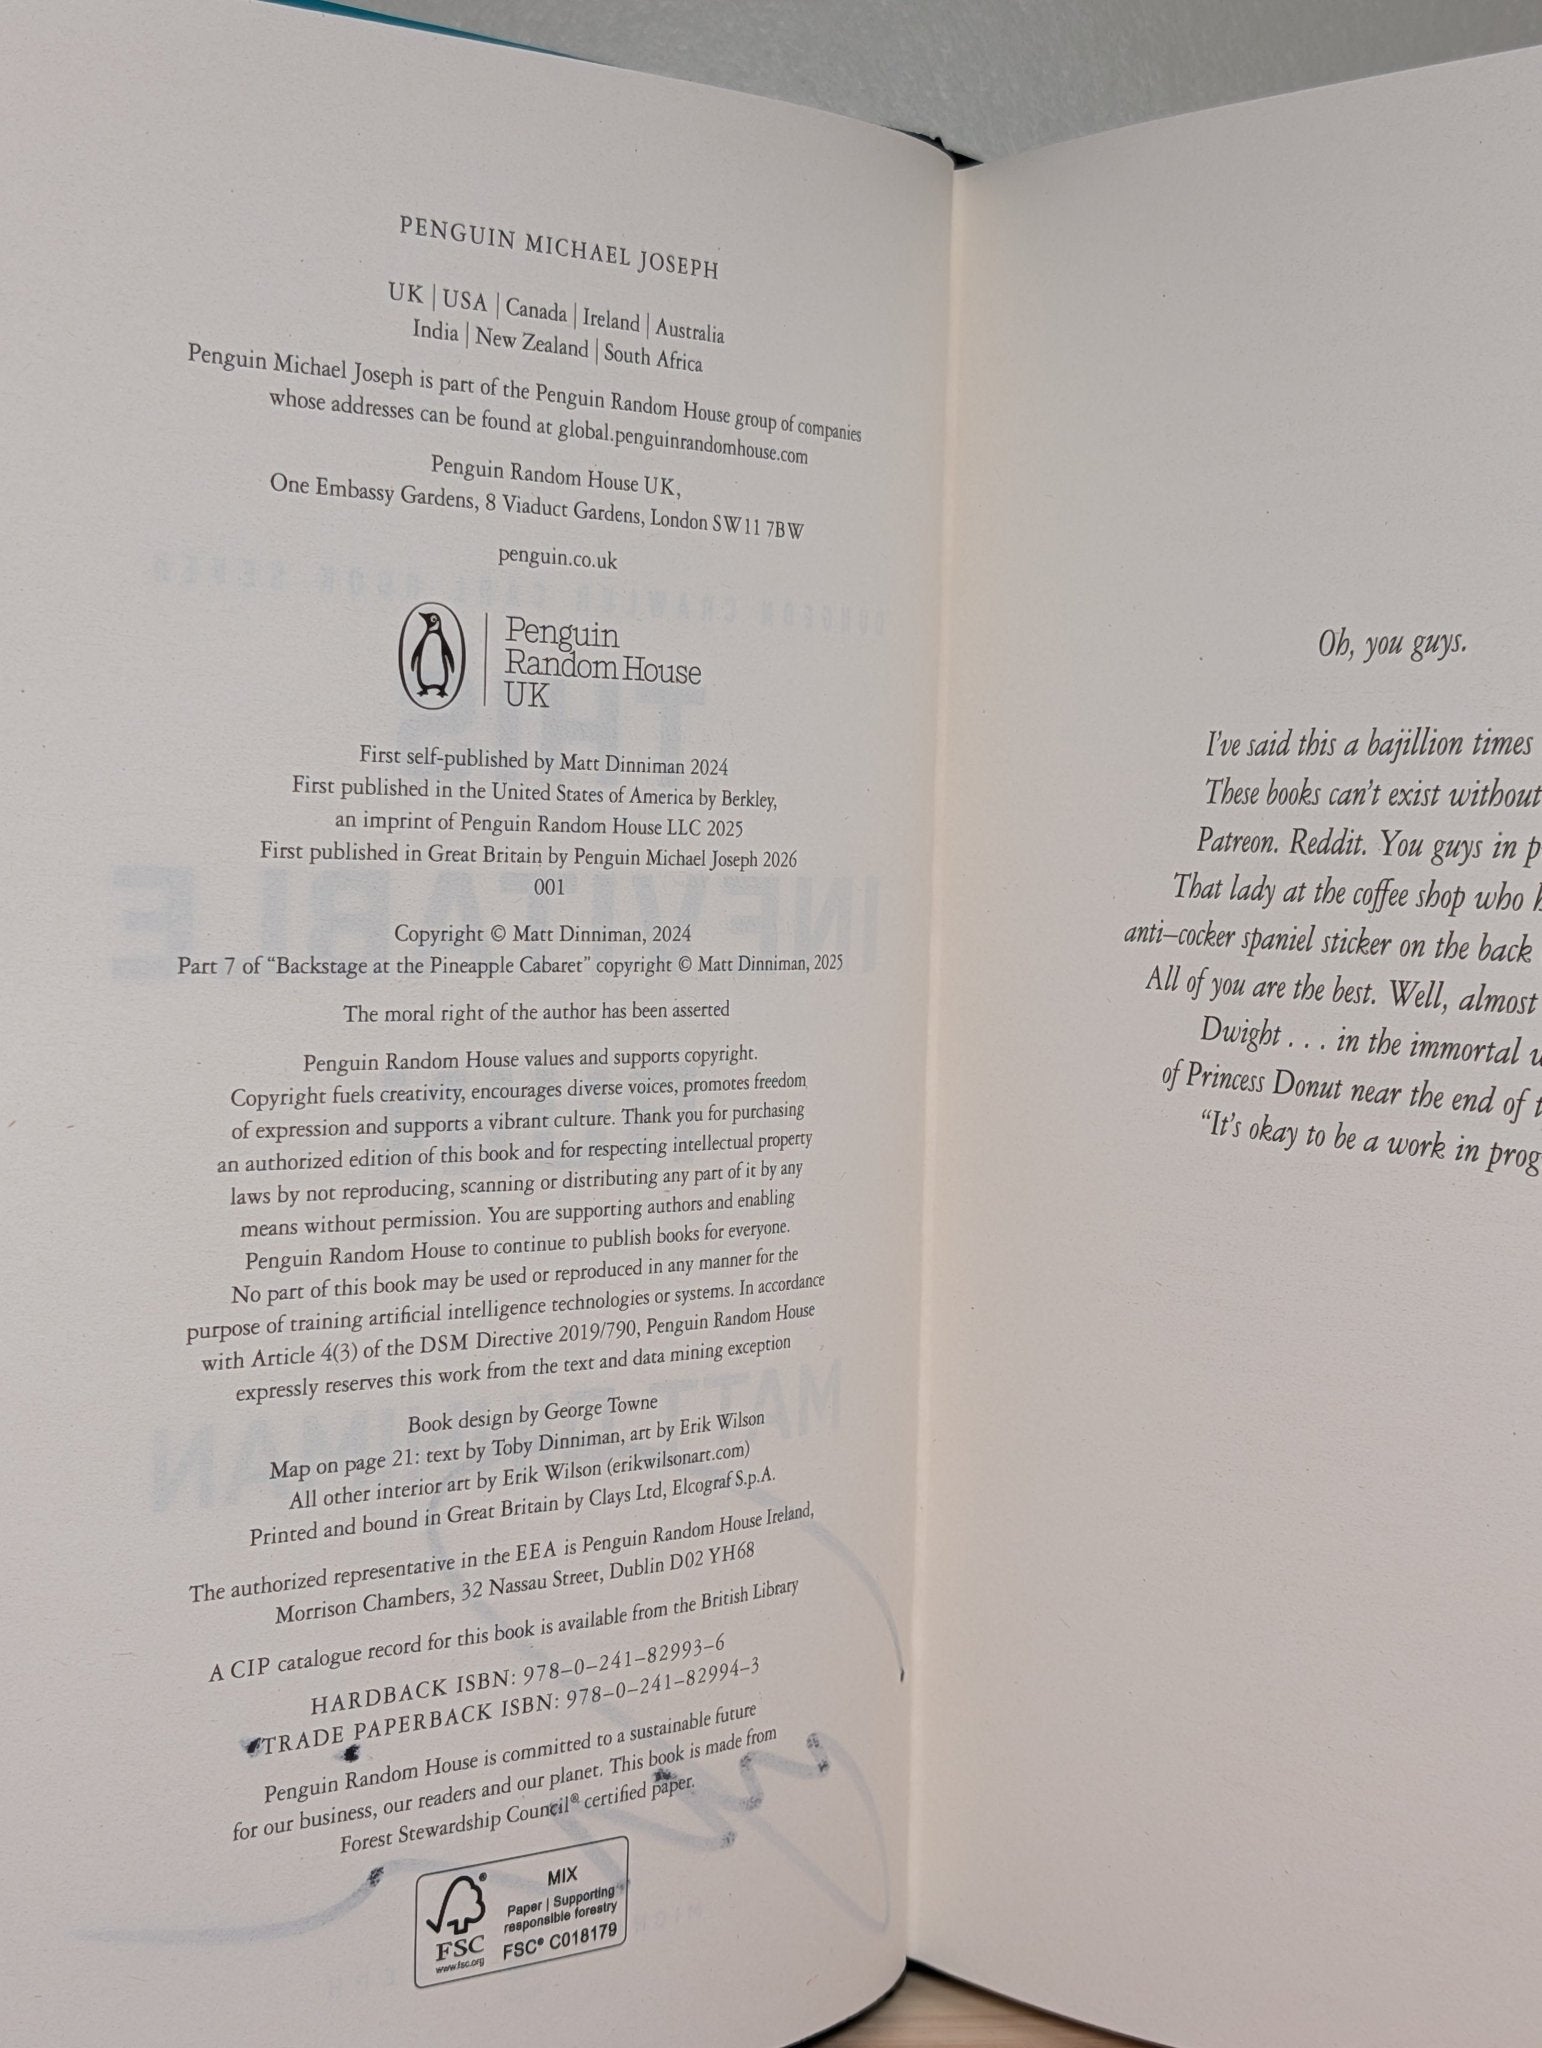 PENGUIN MICHAEL JOSEPH
UK | USA | Canada | Ireland | Australia
India | New Zealand | South Africa
Penguin Michael Joseph is part of the Penguin Random House group of companies
whose addresses can be found at global.penguinrandomhouse.com
Penguin Random House UK,
One Embassy Gardens, 8 Viaduct Gardens, London SW11 7BW
penguin.co.uk
Penguin
Random House
UK
First self-published by Matt Dinniman 2024
First published in the United States of America by Berkley,
an imprint of Penguin Random House LLC 2025
First published in Great Britain by Penguin Michael Joseph 2026
001
Copyright © Matt Dinniman, 2024
Part 7 of “Backstage at the Pineapple Cabaret” copyright © Matt Dinniman, 2025
The moral right of the author has been asserted
Penguin Random House values and supports copyright.
Copyright fuels creativity, encourages diverse voices, promotes freedom
of expression and supports a vibrant culture. Thank you for purchasing
an authorized edition of this book and for respecting intellectual property
laws by not reproducing, scanning or distributing any part of it by any
means without permission. You are supporting authors and enabling
Penguin Random House to continue to publish books for everyone.
No part of this book may be used or reproduced in any manner for the
purpose of training artificial intelligence technologies or systems. In accordance
with Article 4(3) of the DSM Directive 2019/790, Penguin Random House
expressly reserves this work from the text and data mining exception
Book design by George Towne
Map on page 21: text by Toby Dinniman, art by Erik Wilson
All other interior art by Erik Wilson (erikwilsonart.com)
Printed and bound in Great Britain by Clays Ltd, Elcograf S.p.A.
The authorized representative in the EEA is Penguin Random House Ireland,
Morrison Chambers, 32 Nassau Street, Dublin D02 YH68
A CIP catalogue record for this book is available from the British Library
HARDBACK ISBN: 978–0–241–82993–6
TRADE PAPERBACK ISBN: 978–0–241–82994–3
Penguin Random House is committed to a sustainable future
for our business, our readers and our planet. This book is made from
Forest Stewardship Council® certified paper.
MIX
Paper | Supporting
responsible forestry
FSC
www.fsc.org
FSC® C018179
Oh, you guys.
I’ve said this a bajillion times
These books can’t exist without
Patreon. Reddit. You guys in p
That lady at the coffee shop who h
anti–cocker spaniel sticker on the back
All of you are the best. Well, almost
Dwight . . . in the immortal w
of Princess Donut near the end of t
“It’s okay to be a work in prog